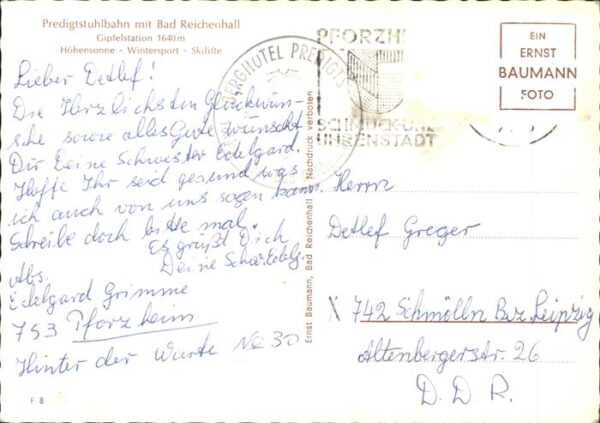 Predigtstuhlbahn mit Bad Reichenhall
Gipfelstation 1640 m
Höhensonne - Wintersport - Skilifte
Lieber Detlef!
Die Herzlichsten Glückwün-
sche sowie alles Gute wünscht
Dir Deine Schwester Edelgard.
Hoffe Ihr seid gesund was
ich auch von uns sagen kann.
Schreibe doch bitte mal.
Es grüßt Dich
Deine Schw. Edelg.
Abs.
Edelgard Grimme
753 Pforzheim
Hinter der Warte No 30
F 8
BERGHOTEL PREDIGTS
PFORZH
SCHMUCK-UND
UHRENSTADT
Ernst Baumann, Bad Reichenhall Nachdruck verboten
EIN
ERNST
BAUMANN
FOTO
Herrn
Detlef Greger
X 742 Schmölln Bez. Leipzig
Altenbergerstr. 26
D. D. R.